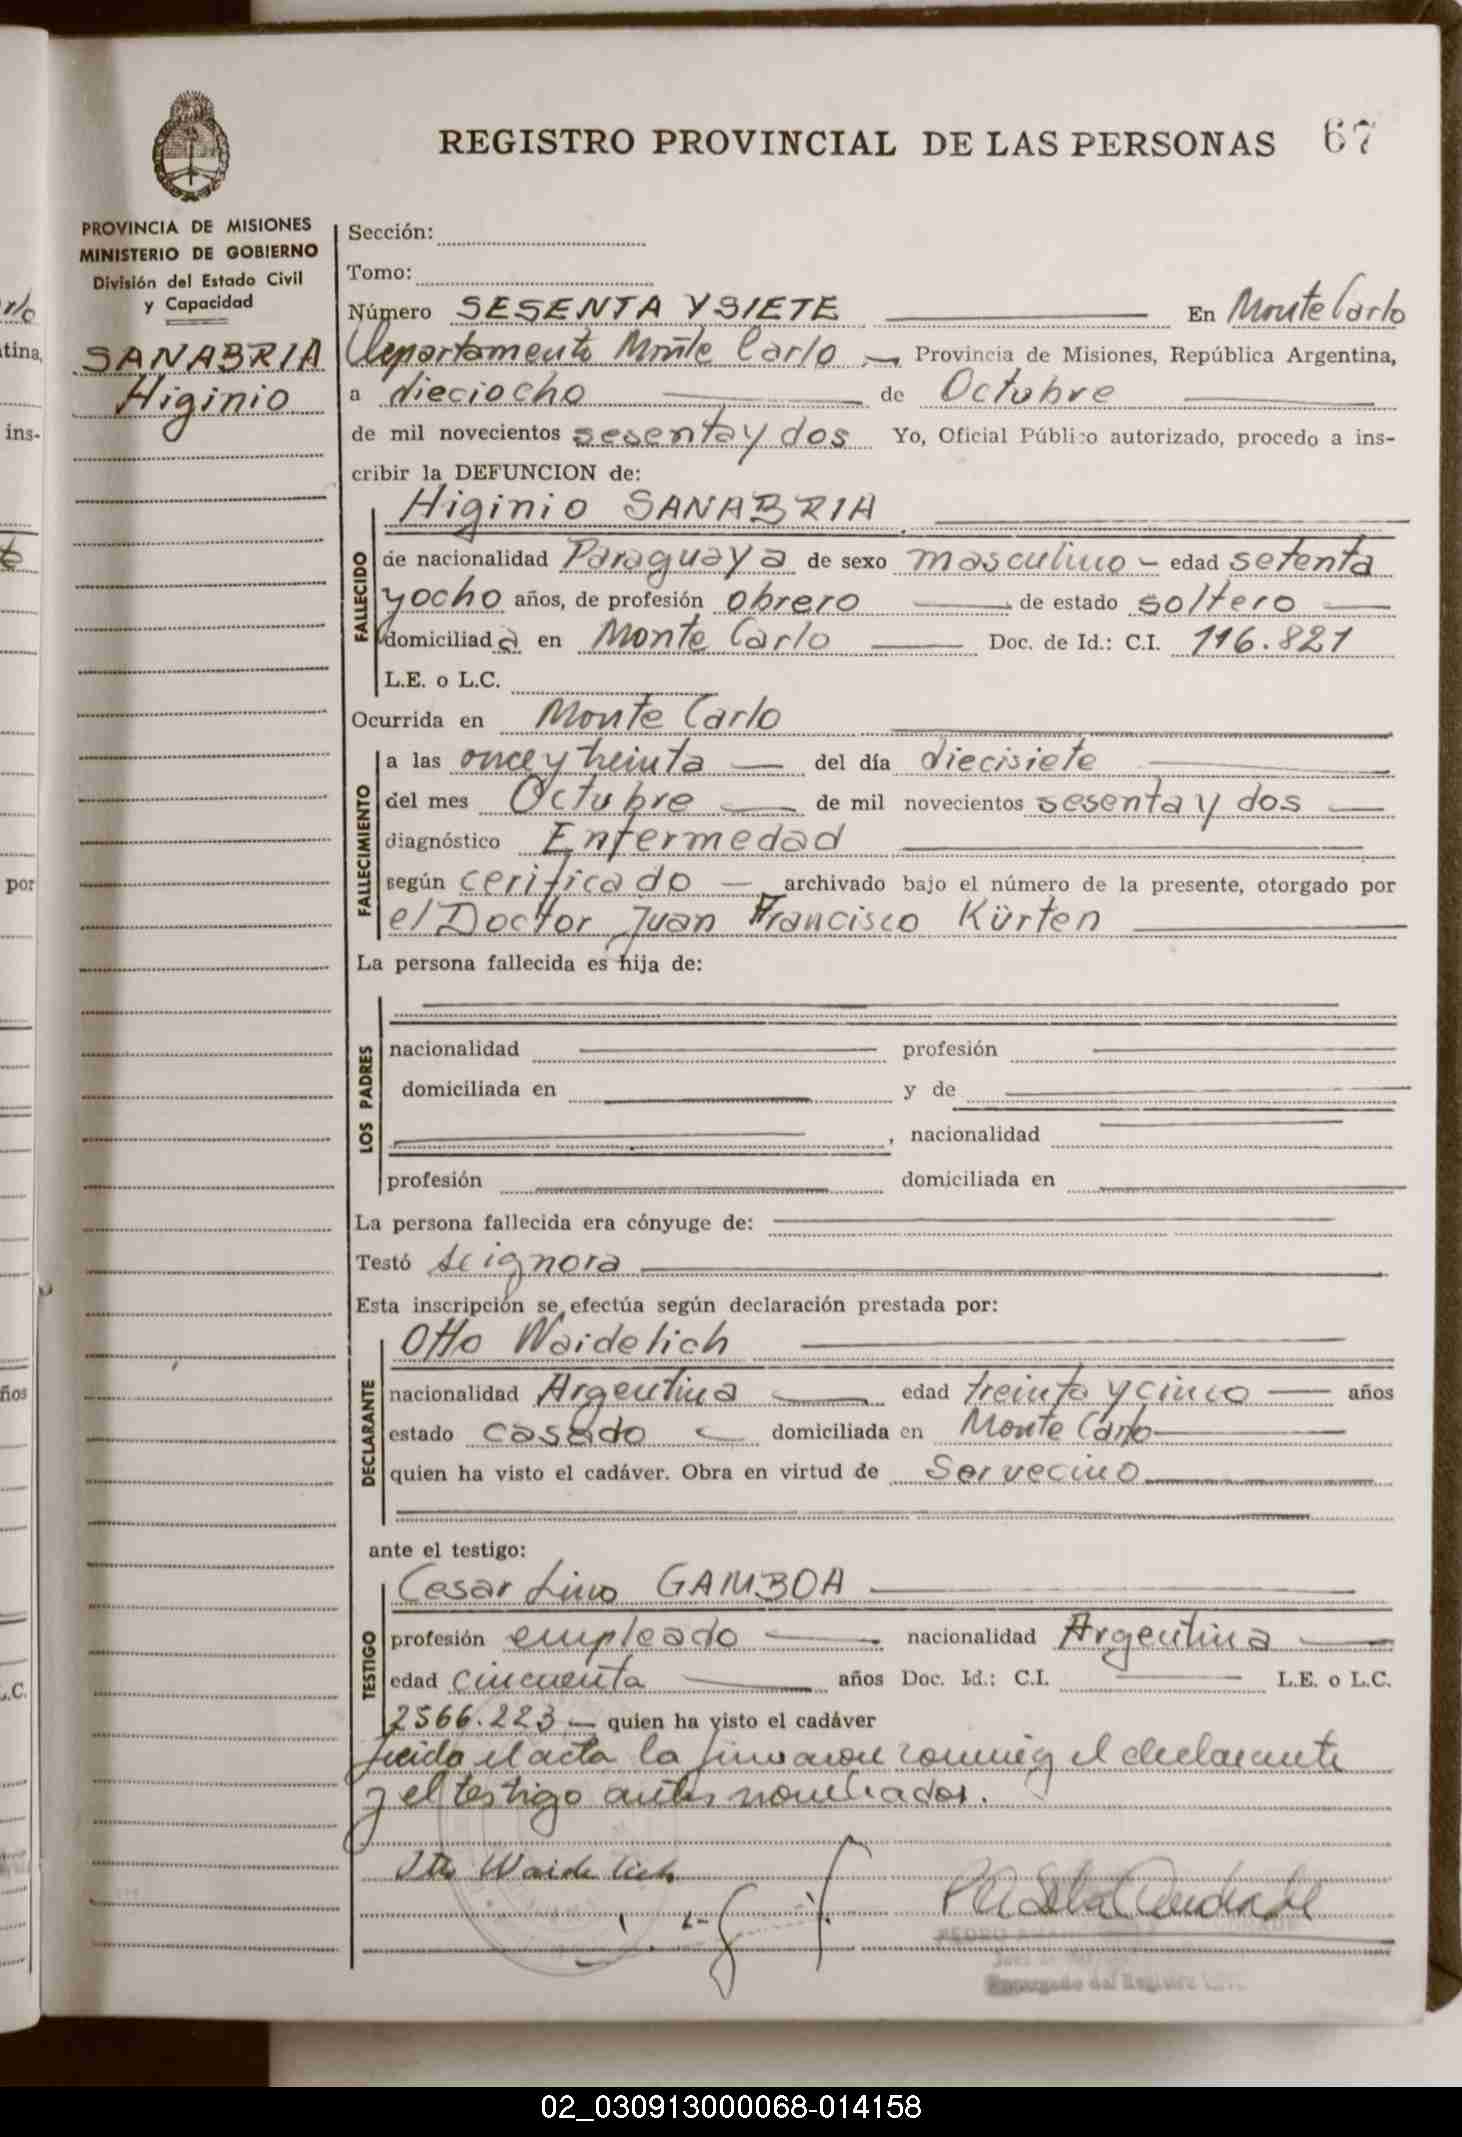 REGISTRO PROVINCIAL DE LAS PERSONAS 67
PROVINCIA DE MISIONES
MINISTERIO DE GOBIERNO
División del Estado Civil
y Capacidad
SANABRIA
Higinio
Sección:
Tomo:
Número SESENTA Y SIETE En Monte Carlo
Departamento Monte Carlo, Provincia de Misiones, República Argentina,
a dieciocho de Octubre
de mil novecientos sesenta y dos Yo, Oficial Público autorizado, procedo a ins-
cribir la DEFUNCION de:
Higinio SANABRIA
FALLECIDO
de nacionalidad Paraguaya de sexo masculino - edad setenta
y ocho años, de profesión obrero de estado soltero
domiciliada en Monte Carlo Doc. de Id.: C.I. 116.821
L.E. o L.C.
Ocurrida en Monte Carlo
FALLECIMIENTO
a las once y treinta del día diecisiete
del mes Octubre de mil novecientos sesenta y dos
diagnóstico Enfermedad
según cerificado archivado bajo el número de la presente, otorgado por
el Doctor Juan Francisco Kürten
La persona fallecida es hija de:
LOS PADRES
nacionalidad profesión
domiciliada en y de
, nacionalidad
profesión domiciliada en
La persona fallecida era cónyuge de:
Testó se ignora
Esta inscripción se efectúa según declaración prestada por:
Otto Waidelich
DECLARANTE
nacionalidad Argentina edad treinta y cinco años
estado casado domiciliada en Monte Carlo
quien ha visto el cadáver. Obra en virtud de Ser vecino
ante el testigo:
Cesar Lino GAMBOA
TESTIGO
profesión empleado nacionalidad Argentina
edad cincuenta años Doc. Id.: C.I. L.E. o L.C.
2566.223 quien ha visto el cadáver
Leida el acta la firmaron conmigo el declarante
y el testigo antes nombrados.
Otto Waidelich
PEDRO
Encargado del Registro
rlo
tina,
ins-
por
ños
.C.
02_030913000068-014158